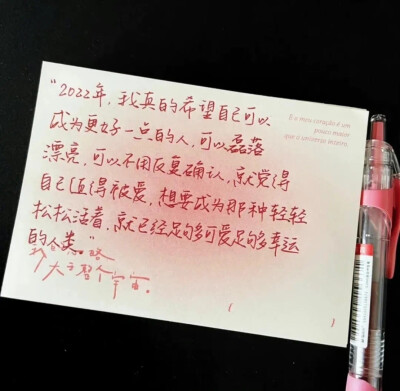 “2022年,我真的希望自己可以
成为更好一点的人,可以磊落
漂亮,可以不用反复确认,就觉得
自己值得被爱,想要成为那种轻轻
松松活着,就已经足够可爱足够多幸运
的人类。”
大于整个宇宙。
E o meu coração é um
pouco maior
que o universo inteiro.